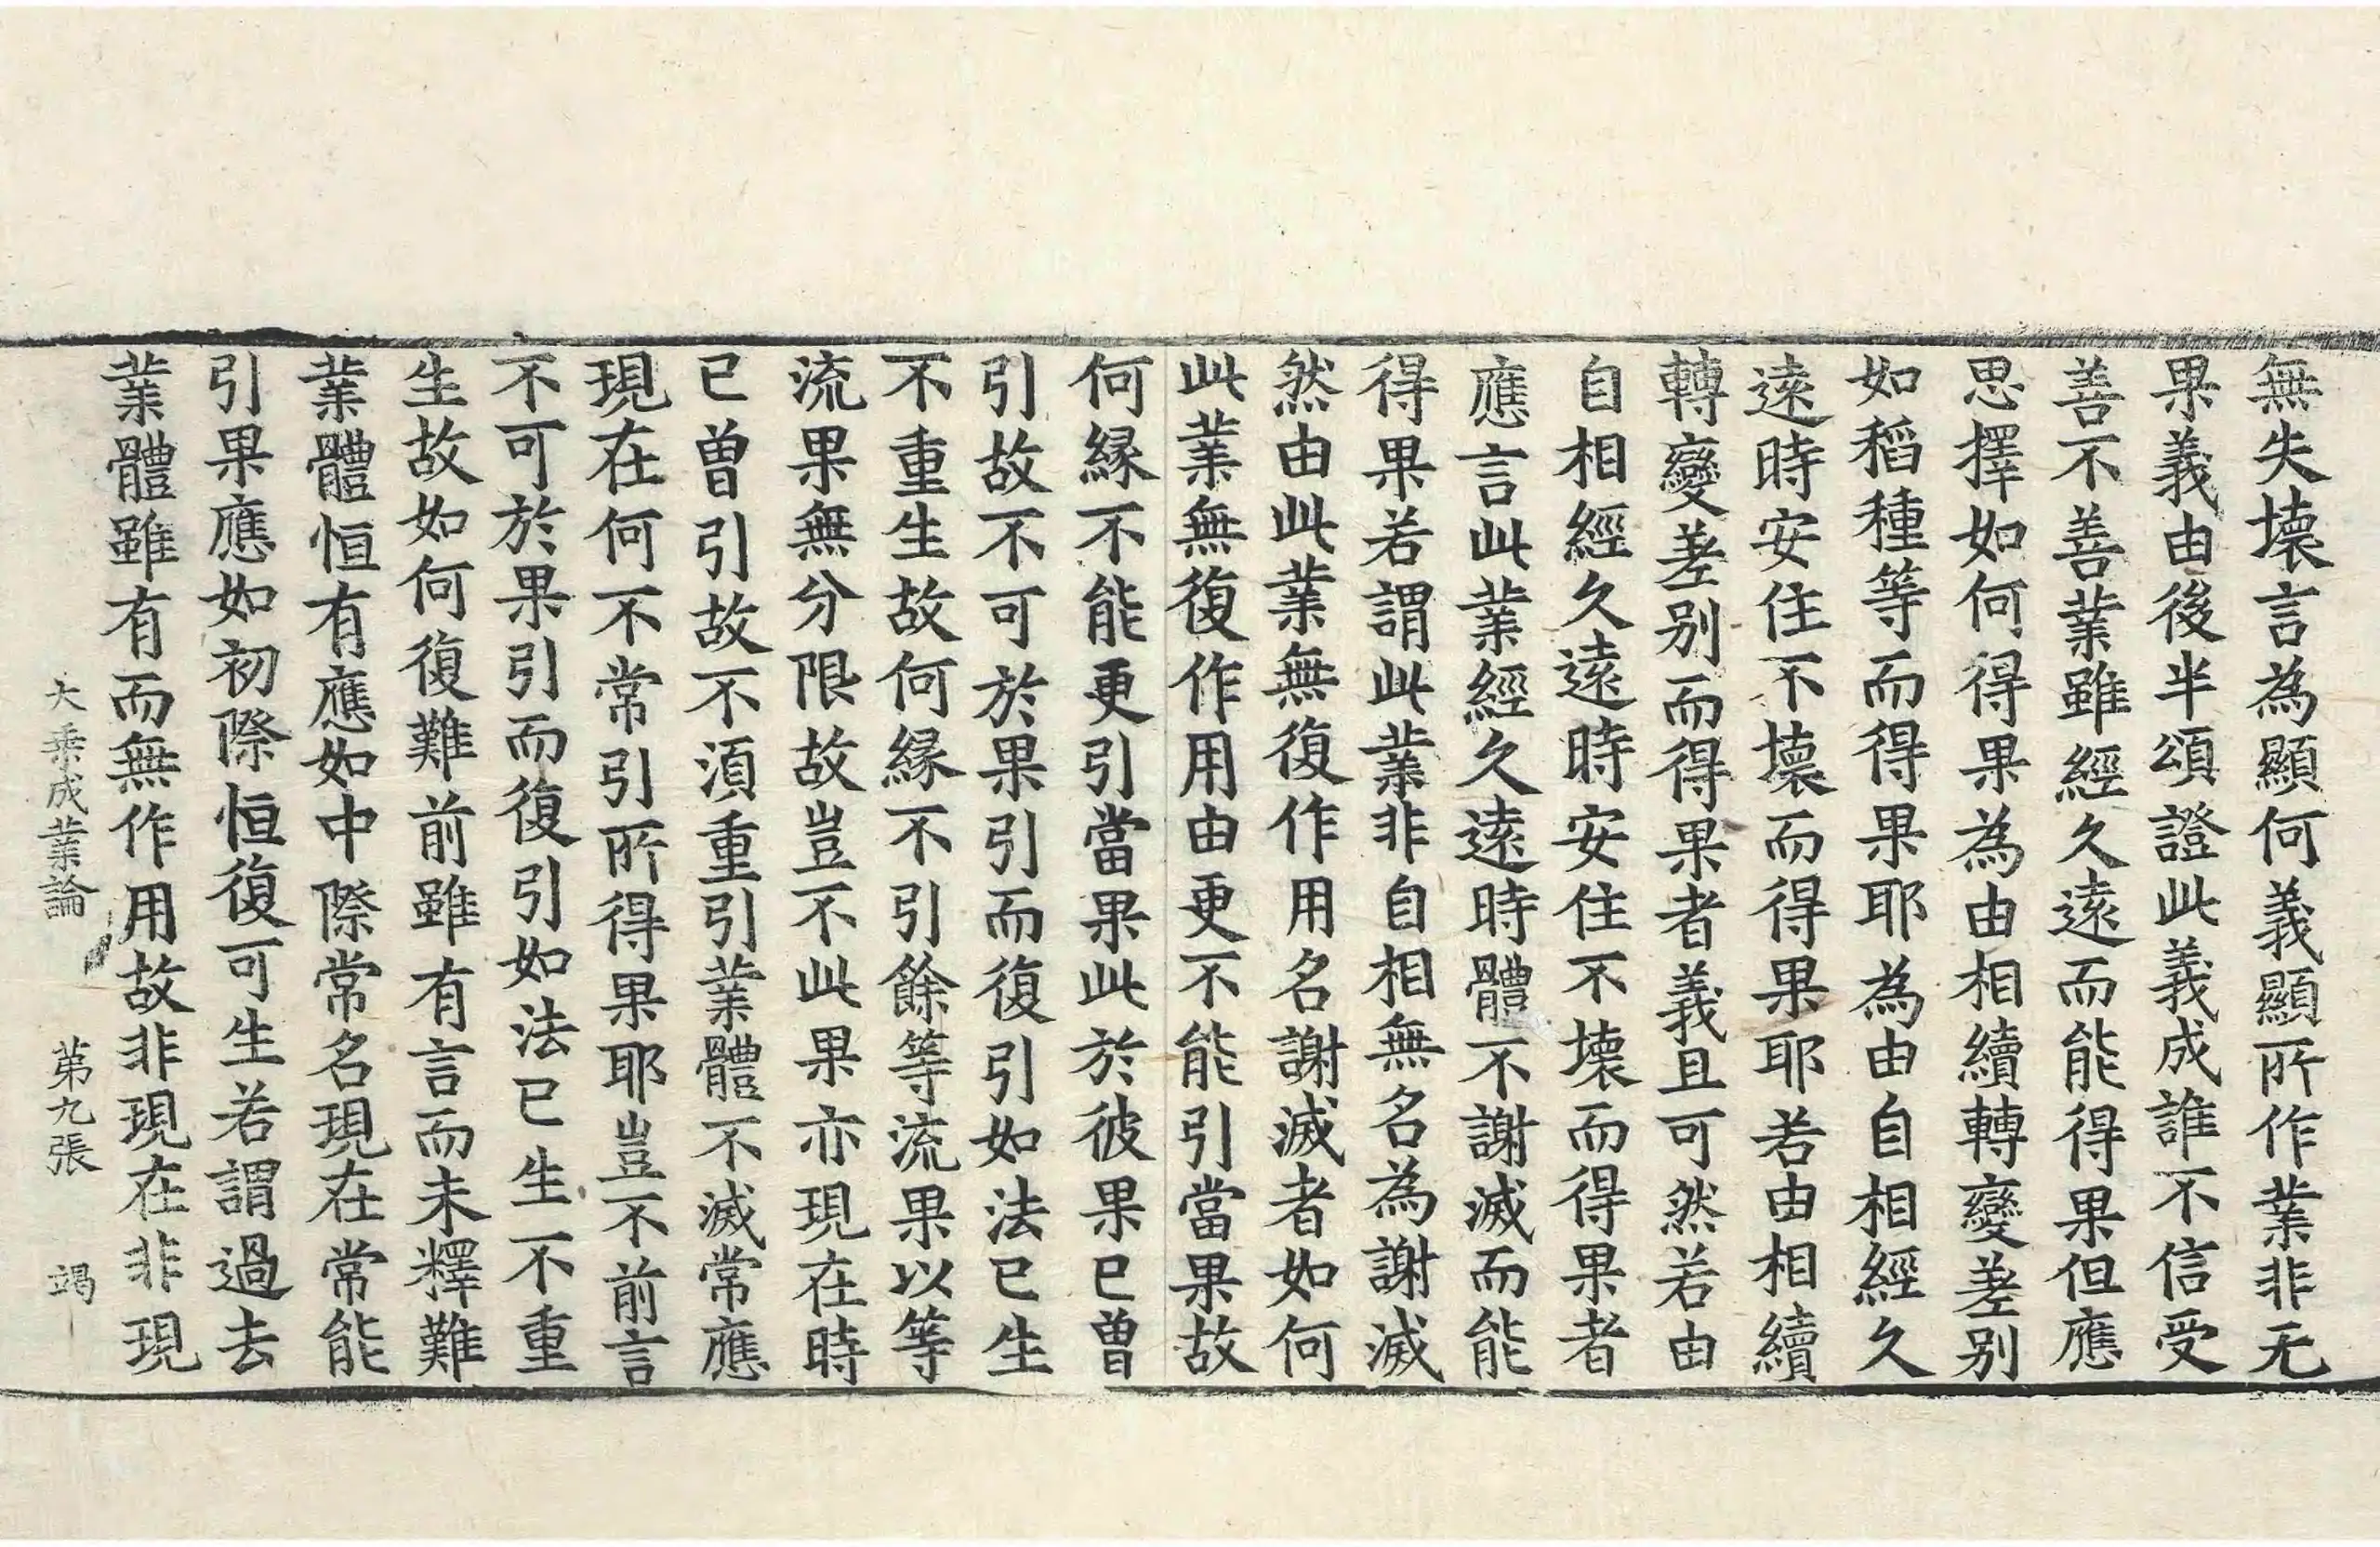 無失壞言為顯何義顯所作業非无
果義由後半頌證此義成誰不信受
善不善業雖經久遠而能得果但應
思擇如何得果為由相續轉變差別
如稻種等而得果耶為由自相經久
遠時安住不壞而得果耶若由相續
轉變差別而得果者義且可然若由
自相經久遠時安住不壞而得果者
應言此業經久遠時體不謝滅而能
得果若謂此業非自相無名為謝滅
然由此業無復作用名謝滅者如何
此業無復作用由更不能引當果故
何縁不能更引當果此於彼果已曽
引故不可於果引而復引如法已生
不重生故何縁不引餘等流果以等
流果無分限故豈不此果亦現在時
已曽引故不須重引業體不滅常應
現在何不常引所得果耶豈不前言
不可於果引而復引如法已生不重
生故如何復難前雖有言而未釋難
業體恒有應如中際常名現在常能
引果應如初際恒復可生若謂過去
業體雖有而無作用故非現在非現
大乘成業論　第九張　竭